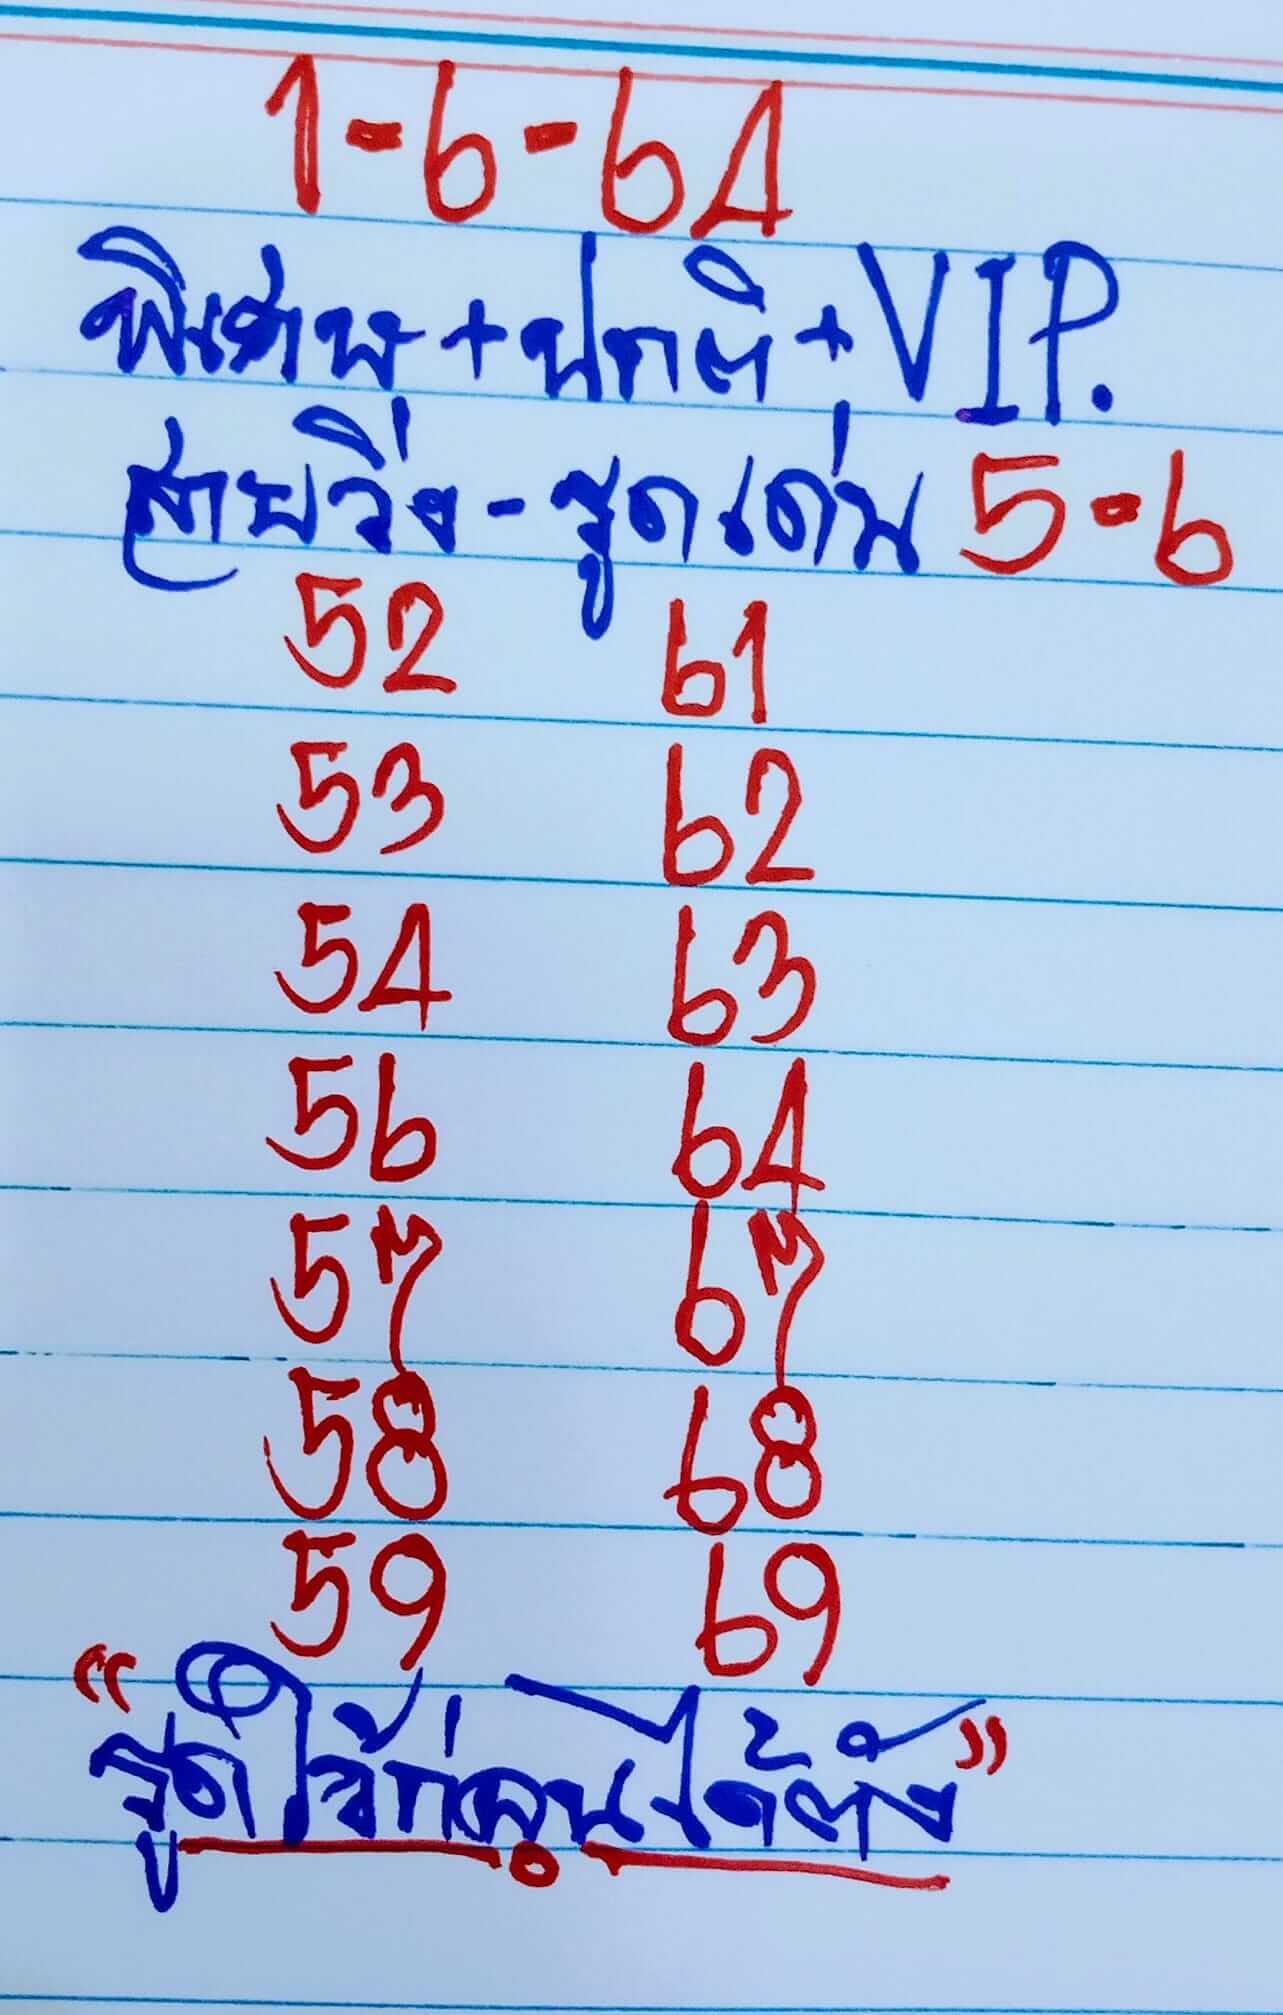 1-6-64
พิเศษ+ปกติ+VIP.
สายวิ่ง-รูดเด่น 5-6
52 61
53 62
54 63
56 64
57 67
58 68
59 69
"รูดไว้ก่อนได้ตัง"